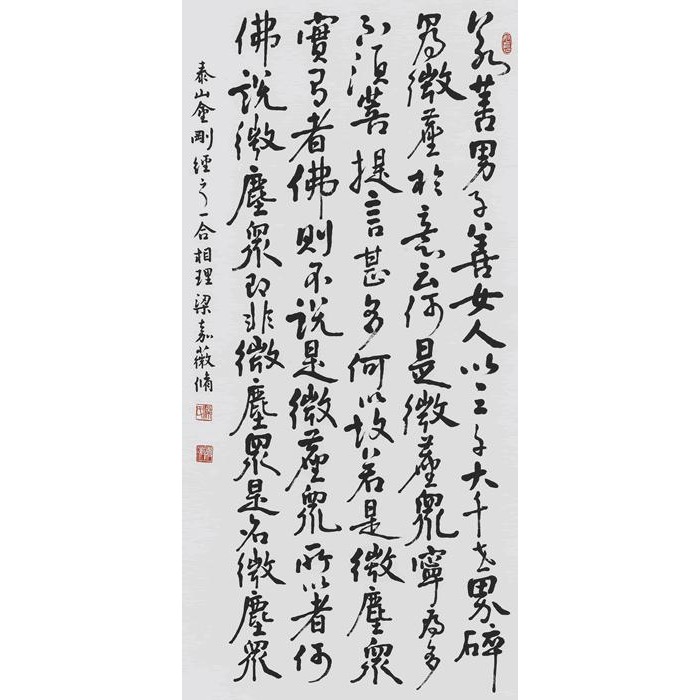 若善男子善女人以三千大千世界碎
為微塵於意云何是微塵眾寧為多
不須菩提言甚多何以故若是微塵眾
實有者佛則不說是微塵眾所以者何
佛說微塵眾即非微塵眾是名微塵眾
泰山金剛經之一合相理梁嘉薇脩